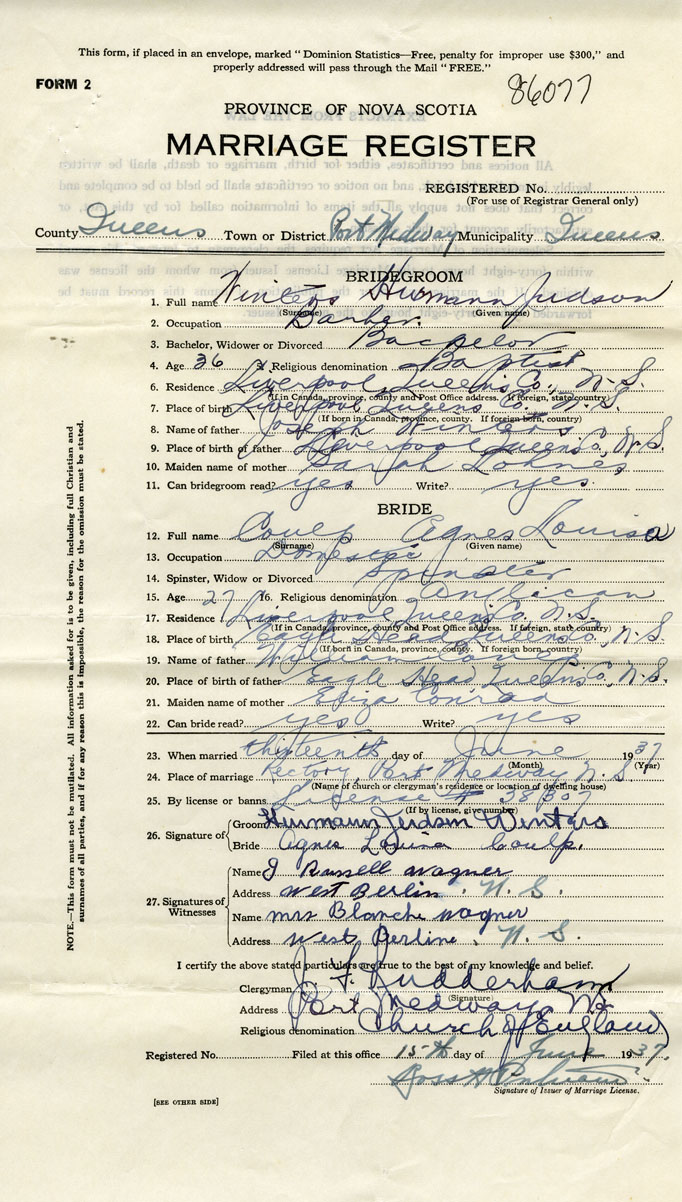 This form, if placed in an envelope, marked "Dominion Statistics—Free, penalty for improper use $300," and
properly addressed will pass through the Mail "FREE."
FORM 2
86077
PROVINCE OF NOVA SCOTIA
MARRIAGE REGISTER
REGISTERED No.
(For use of Registrar General only)
County Queens Town or District Port Medway Municipality Queens
BRIDEGROOM
1. Full name Winters Hermann Judson
(Surname) (Given name)
2. Occupation Barber.
3. Bachelor, Widower or Divorced Bachelor
4. Age 36 5. Religious denomination Baptist
6. Residence Liverpool Queens Co., N.S.
(If in Canada, province, county and Post Office address. If foreign, state country)
7. Place of birth Liverpool Queens Co. N.S.
(If born in Canada, province, county. If foreign born, country)
8. Name of father Joseph Winters
9. Place of birth of father Liverpool Queens Co., N.S.
10. Maiden name of mother Sarah Lohnes
11. Can bridegroom read? yes Write? yes.
BRIDE
12. Full name Coulp Agnes Louisa
(Surname) (Given name)
13. Occupation Domestic
14. Spinster, Widow or Divorced Spinster
15. Age 27 16. Religious denomination Anglican
17. Residence Liverpool Queens Co. N.S.
(If in Canada, province, county and Post Office address. If foreign, state country)
18. Place of birth Eagle Head Queens Co., N.S.
(If born in Canada, province, county. If foreign born, country)
19. Name of father William
20. Place of birth of father Eagle Head Queens Co., N.S.
21. Maiden name of mother Eliza Conrad
22. Can bride read? yes Write? yes
23. When married thirteenth day of June 1937
(Month) (Year)
24. Place of marriage Rectory, Port Medway N.S.
(Name of church or clergyman's residence or location of dwelling house)
25. By license or banns License #
(If by license, give number)
26. Signature of Groom Hermann Judson Winters
Bride Agnes Louisa Coulp.
27. Signatures of Witnesses
Name J Russell Wagner
Address West Berlin, N.S.
Name Mrs Blanche Wagner
Address West Berline, N.S.
I certify the above stated particulars are true to the best of my knowledge and belief.
Clergyman J. F. Rudderham
(Signature)
Address Port Medway NS
Religious denomination Church of England
Registered No. Filed at this office 15th day of June 1937.
Signature of Issuer of Marriage License.
[SEE OTHER SIDE]
NOTE.—This form must not be mutilated. All information asked for is to be given, including full Christian and
surnames of all parties, and if for any reason this is impossible, the reason for the omission must be stated.